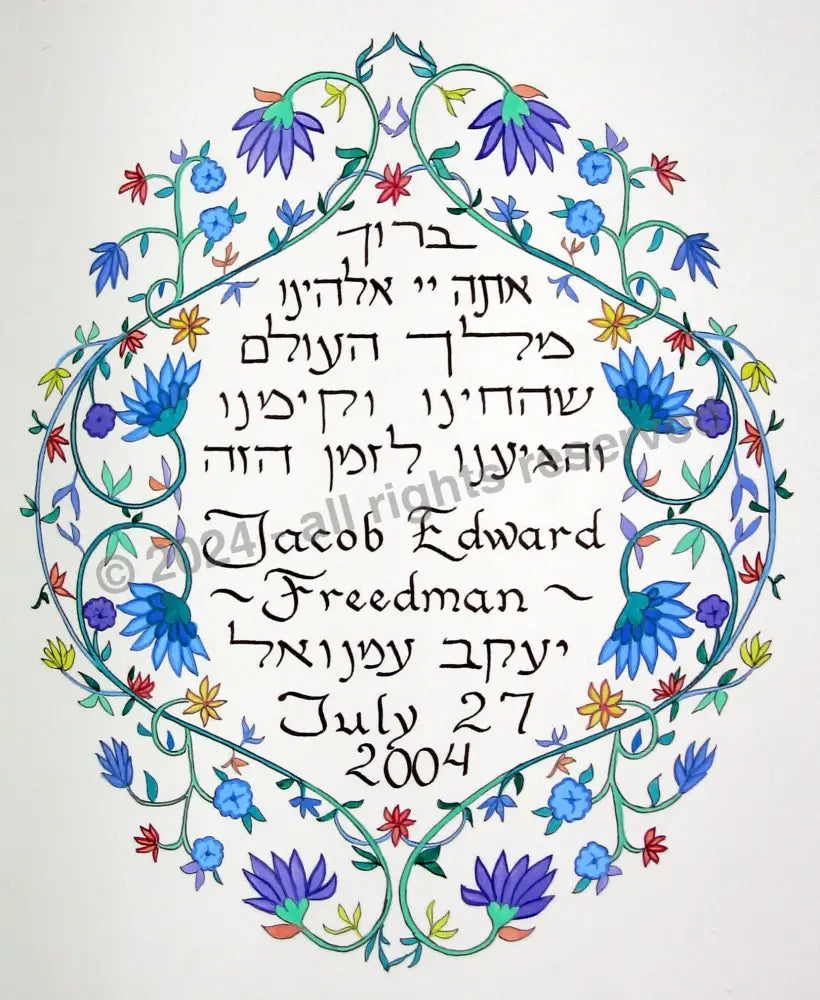 ברוך
אתה יי אלהינו
מלך העולם
שהחינו וקימנו
והגיענו לזמן הזה
Jacob Edward
~ Freedman ~
יעקב עמנואל
July 27
2004
© 2024 - all rights reserved